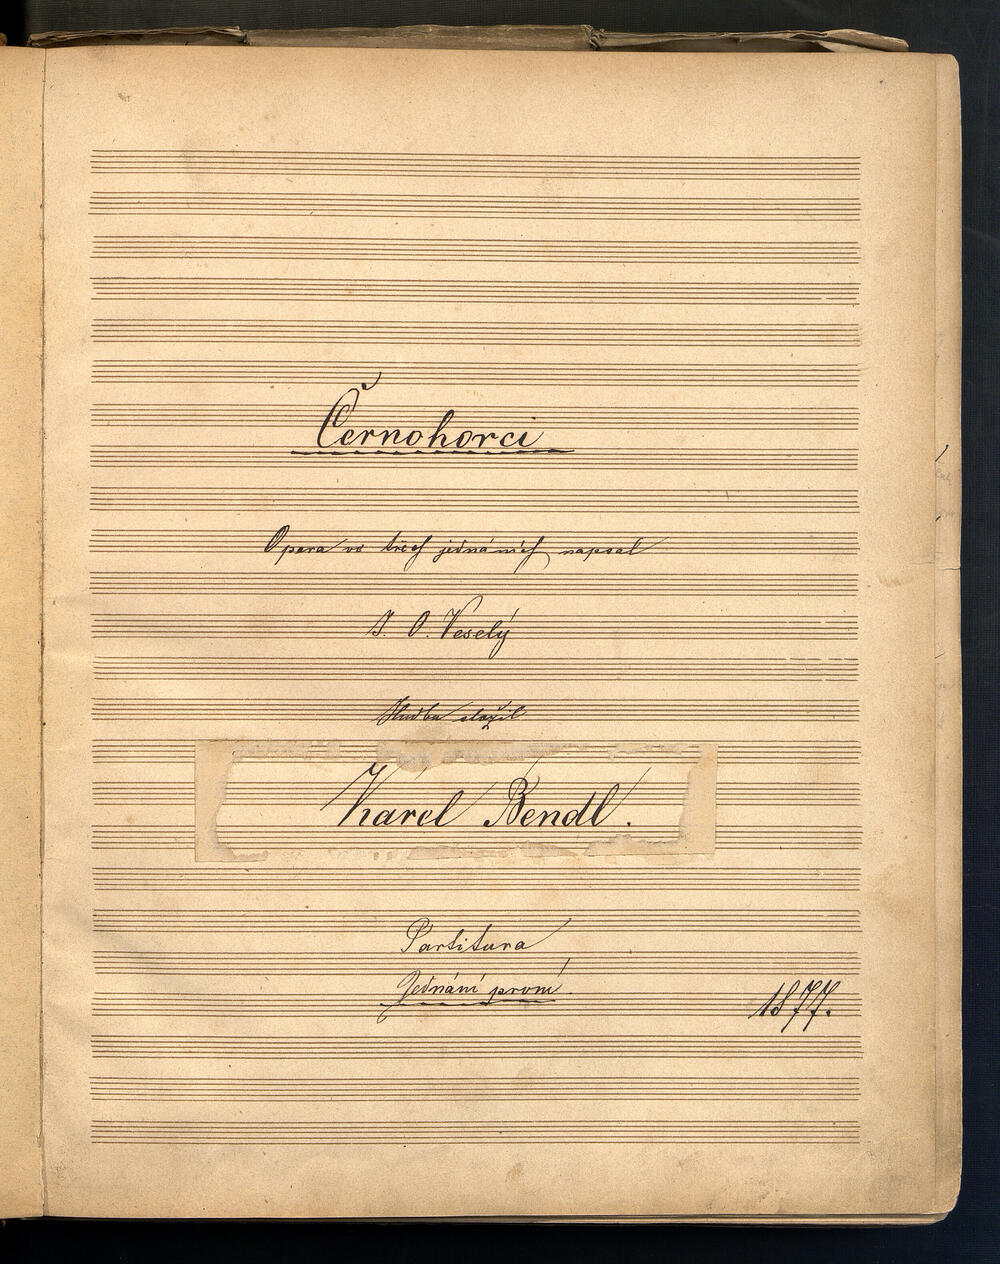 Černohorci
Opera ve třech jednáních napsal
J. O. Veselý
Hudbu složil
Karel Bendl.
Partitura
Jednání první.
1877.